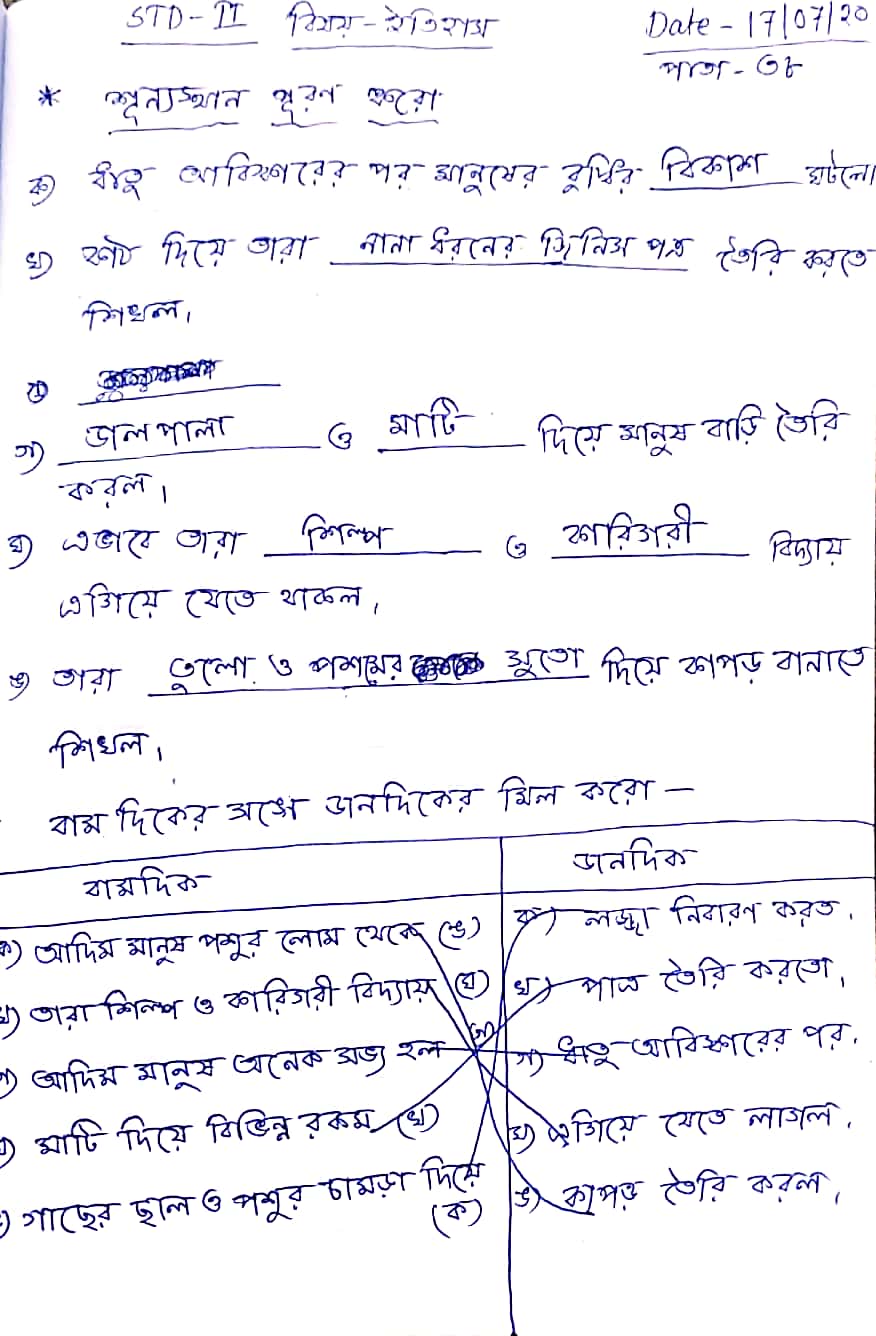 STD - II বিষয় - ইতিহাস Date - 17/07/20
পাতা - ৩৮
* শূন্যস্থান পূরণ করো
ক) ধাতু আবিষ্কারের পর মানুষের বুদ্ধির বিকাশ ঘটলো।
খ) কাঠ দিয়ে তারা নানা ধরনের জিনিস পত্র তৈরি করতে
শিখল।
গ) ডালপালা ও মাটি দিয়ে মানুষ বাড়ি তৈরি
করল।
ঘ) এভাবে তারা শিল্প ও কারিগরী বিদ্যায়
এগিয়ে যেতে থাকল।
ঙ) তারা তুলো ও পশমের সুতো দিয়ে কাপড় বানাতে
শিখল।
বাম দিকের সঙ্গে ডানদিকের মিল করো —
বামদিক ডানদিক
ক) আদিম মানুষ পশুর লোম থেকে (ঙ) ক) লজ্জা নিবারণ করত।
খ) তারা শিল্প ও কারিগরী বিদ্যায় (ঘ) খ) পাত্র তৈরি করতো।
গ) আদিম মানুষ অনেক সভ্য হল (গ) গ) ধাতু আবিষ্কারের পর।
ঘ) মাটি দিয়ে বিভিন্ন রকম (খ) ঘ) এগিয়ে যেতে লাগল।
ঙ) গাছের ছাল ও পশুর চামড়া দিয়ে (ক) ঙ) কাপড় তৈরি করল।